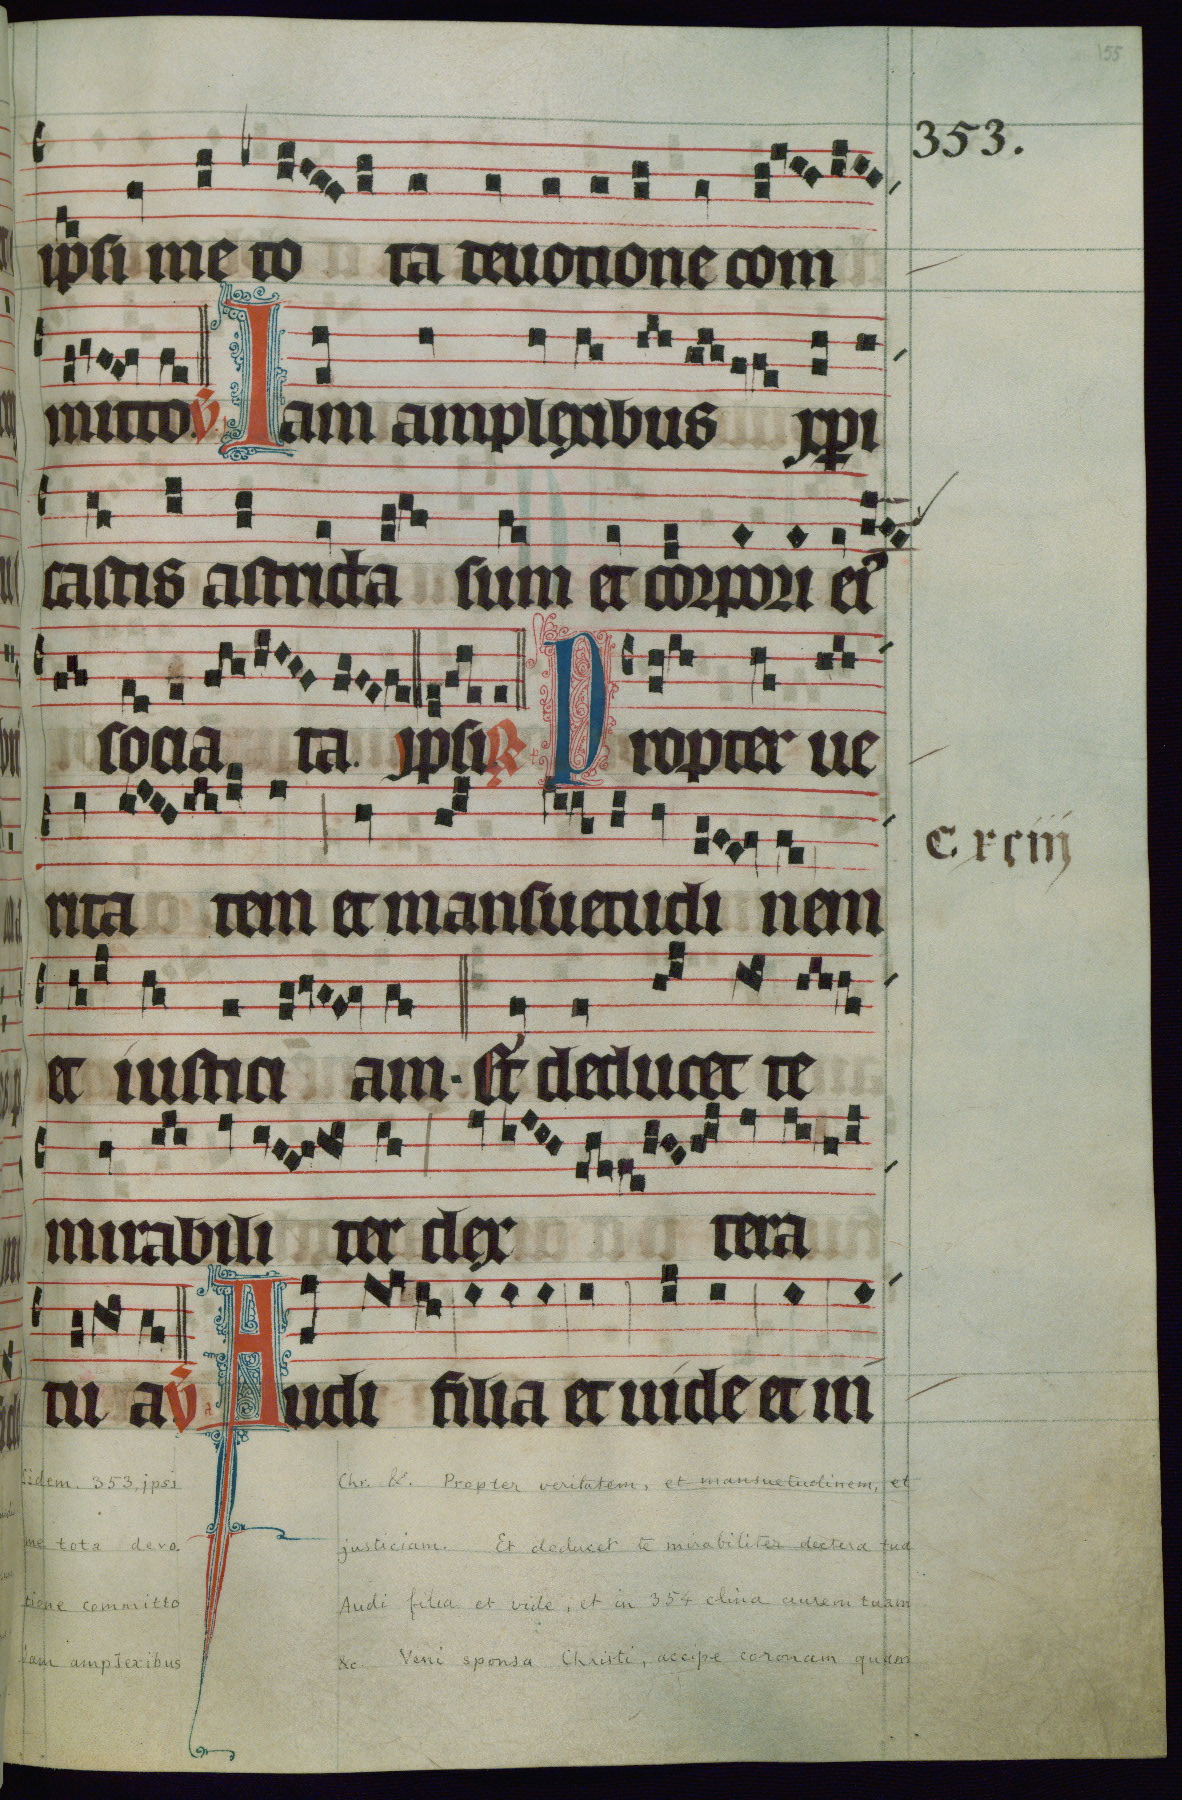 155
353.
ipsi me to ta deuotione com
mitto. V̄ Iam amplexibus xp̄i
castis astricta sum et corpori ei⁹
socia ta. ipsi R̷ Propter ue
rita tem et mansuetudi nem
C. xciij
et iustici am. Et deducet te
mirabili ter dex tera
tu a V̄ Audi filia et uíde et in
Fidem. 353, ipsi
me tota devo
tione committo
Iam amplexibus
Chr. &. Propter veritatem, et mansuetudinem, et
justiciam. Et deducet te mirabiliter dectera tua
Audi filia et vide, et in 354 clina aurem tuam
&c. Veni sponsa Christi, accipe coronam quam